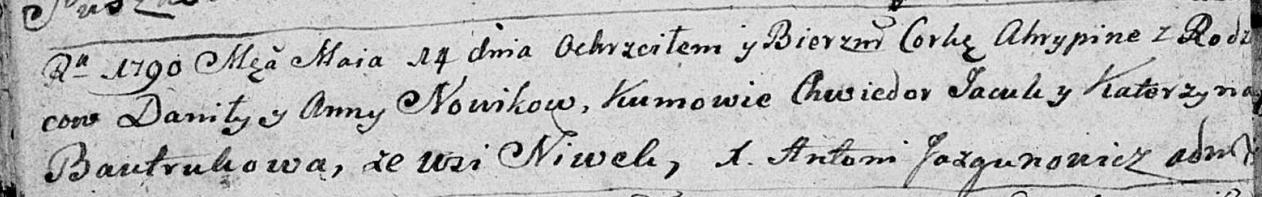 Ra 1790 Męca Maia 14 dnia Ochrzciłem y Bierzm Corkę Ahrypine z Rodzi
cow Daniły y Anny Nowikow, Kumowie Chwiedor Jacuk y Katerzyna
Bautrukowa, ze wsi Niwek, X. Antoni Jazgunowicz adm